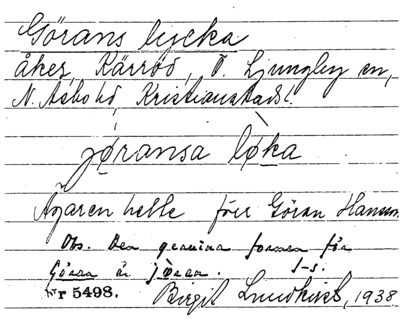 Görans lycka
åker, Kärröd, Ö. Ljungby sn,
N. Åsbo hd, Kristianstads l.
jøransa løka
Ägaren hette förr Göran Hansson
Obs. Den genuina formen för
Göran är jøran. I-s.
Nr 5498. Birgit Lundkvist, 1938